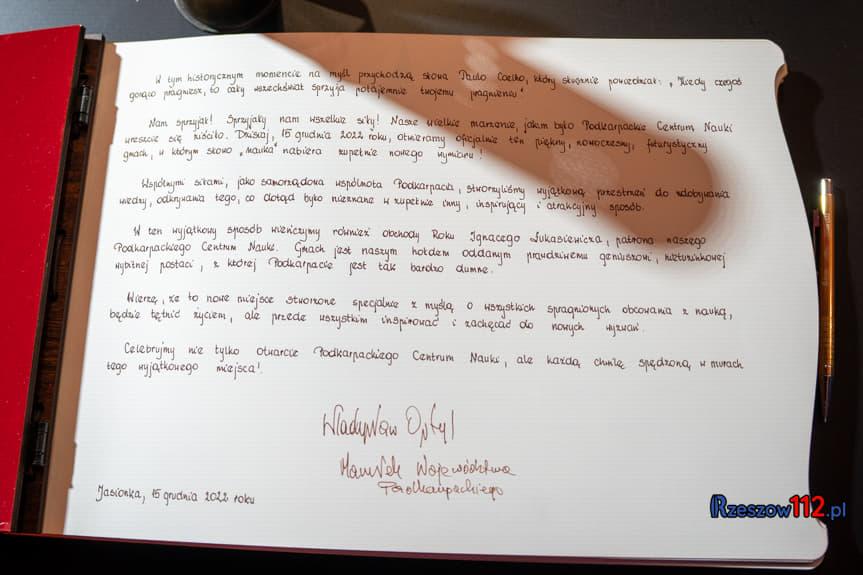 W tym historycznym momencie na myśl przychodzą słowa Paulo Coelho, który słusznie powiedział: „Kiedy czegoś
gorąco pragniesz, to cały wszechświat sprzyja potajemnie twojemu pragnieniu"
Nam sprzyjał! Sprzyjały nam wszelkie siły! Nasze wielkie marzenie, jakim było Podkarpackie Centrum Nauki
wreszcie się ziściło. Dzisiaj, 15 grudnia 2022 roku, otwieramy oficjalnie ten piękny, nowoczesny, futurystyczny
gmach, w którym słowo „nauka" nabiera zupełnie nowego wymiaru!
Wspólnymi siłami, jako samorządowa wspólnota Podkarpacia, stworzyliśmy wyjątkową przestrzeń do zdobywania
wiedzy, odkrywania tego, co dotąd było nieznane w zupełnie inny, inspirujący i atrakcyjny sposób.
W ten wyjątkowy sposób wieńczymy również obchody Roku Ignacego Łukasiewicza, patrona naszego
Podkarpackiego Centrum Nauki. Gmach jest naszym hołdem oddanym prawdziwemu geniuszowi, nietuzinkowej
wybitnej postaci, z której Podkarpacie jest tak bardzo dumne.
Wierzę, że to nowe miejsce stworzone specjalnie z myślą o wszystkich spragnionych obcowania z nauką,
będzie tętnić życiem, ale przede wszystkim inspirować i zachęcać do nowych wyzwań.
Celebrujmy nie tylko otwarcie Podkarpackiego Centrum Nauki, ale każdą chwilę spędzoną w murach
tego wyjątkowego miejsca!
Władysław Ortyl
Marszałek Województwa
Podkarpackiego
Jasionka, 15 grudnia 2022 roku
Rzeszow112.pl